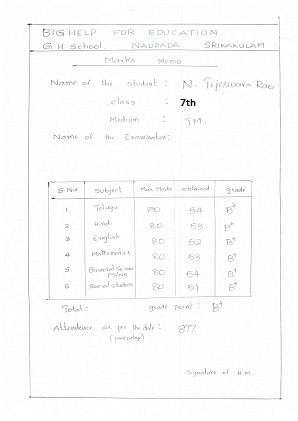 BIG HELP FOR EDUCATION
G.H School. NAUPADA SRIKAKULAM
Marks Memo
Name of the student : N. Tejeswara Rao
class : 7th
Medium : TM.
Name of the Examination:
S.No Subject Max Marks obtained grade
1 Telugu 80 54 B+
2 Hindi 80 58 B+
3 English 80 52 B+
4 Mathematics 80 55 B+
5 General Science 80 54 B+
PS/NS
6 Social studies 80 51 B+
Total: grade point : B+
Attendance as per the date : 87%
(percentage)
Signature of H.M.